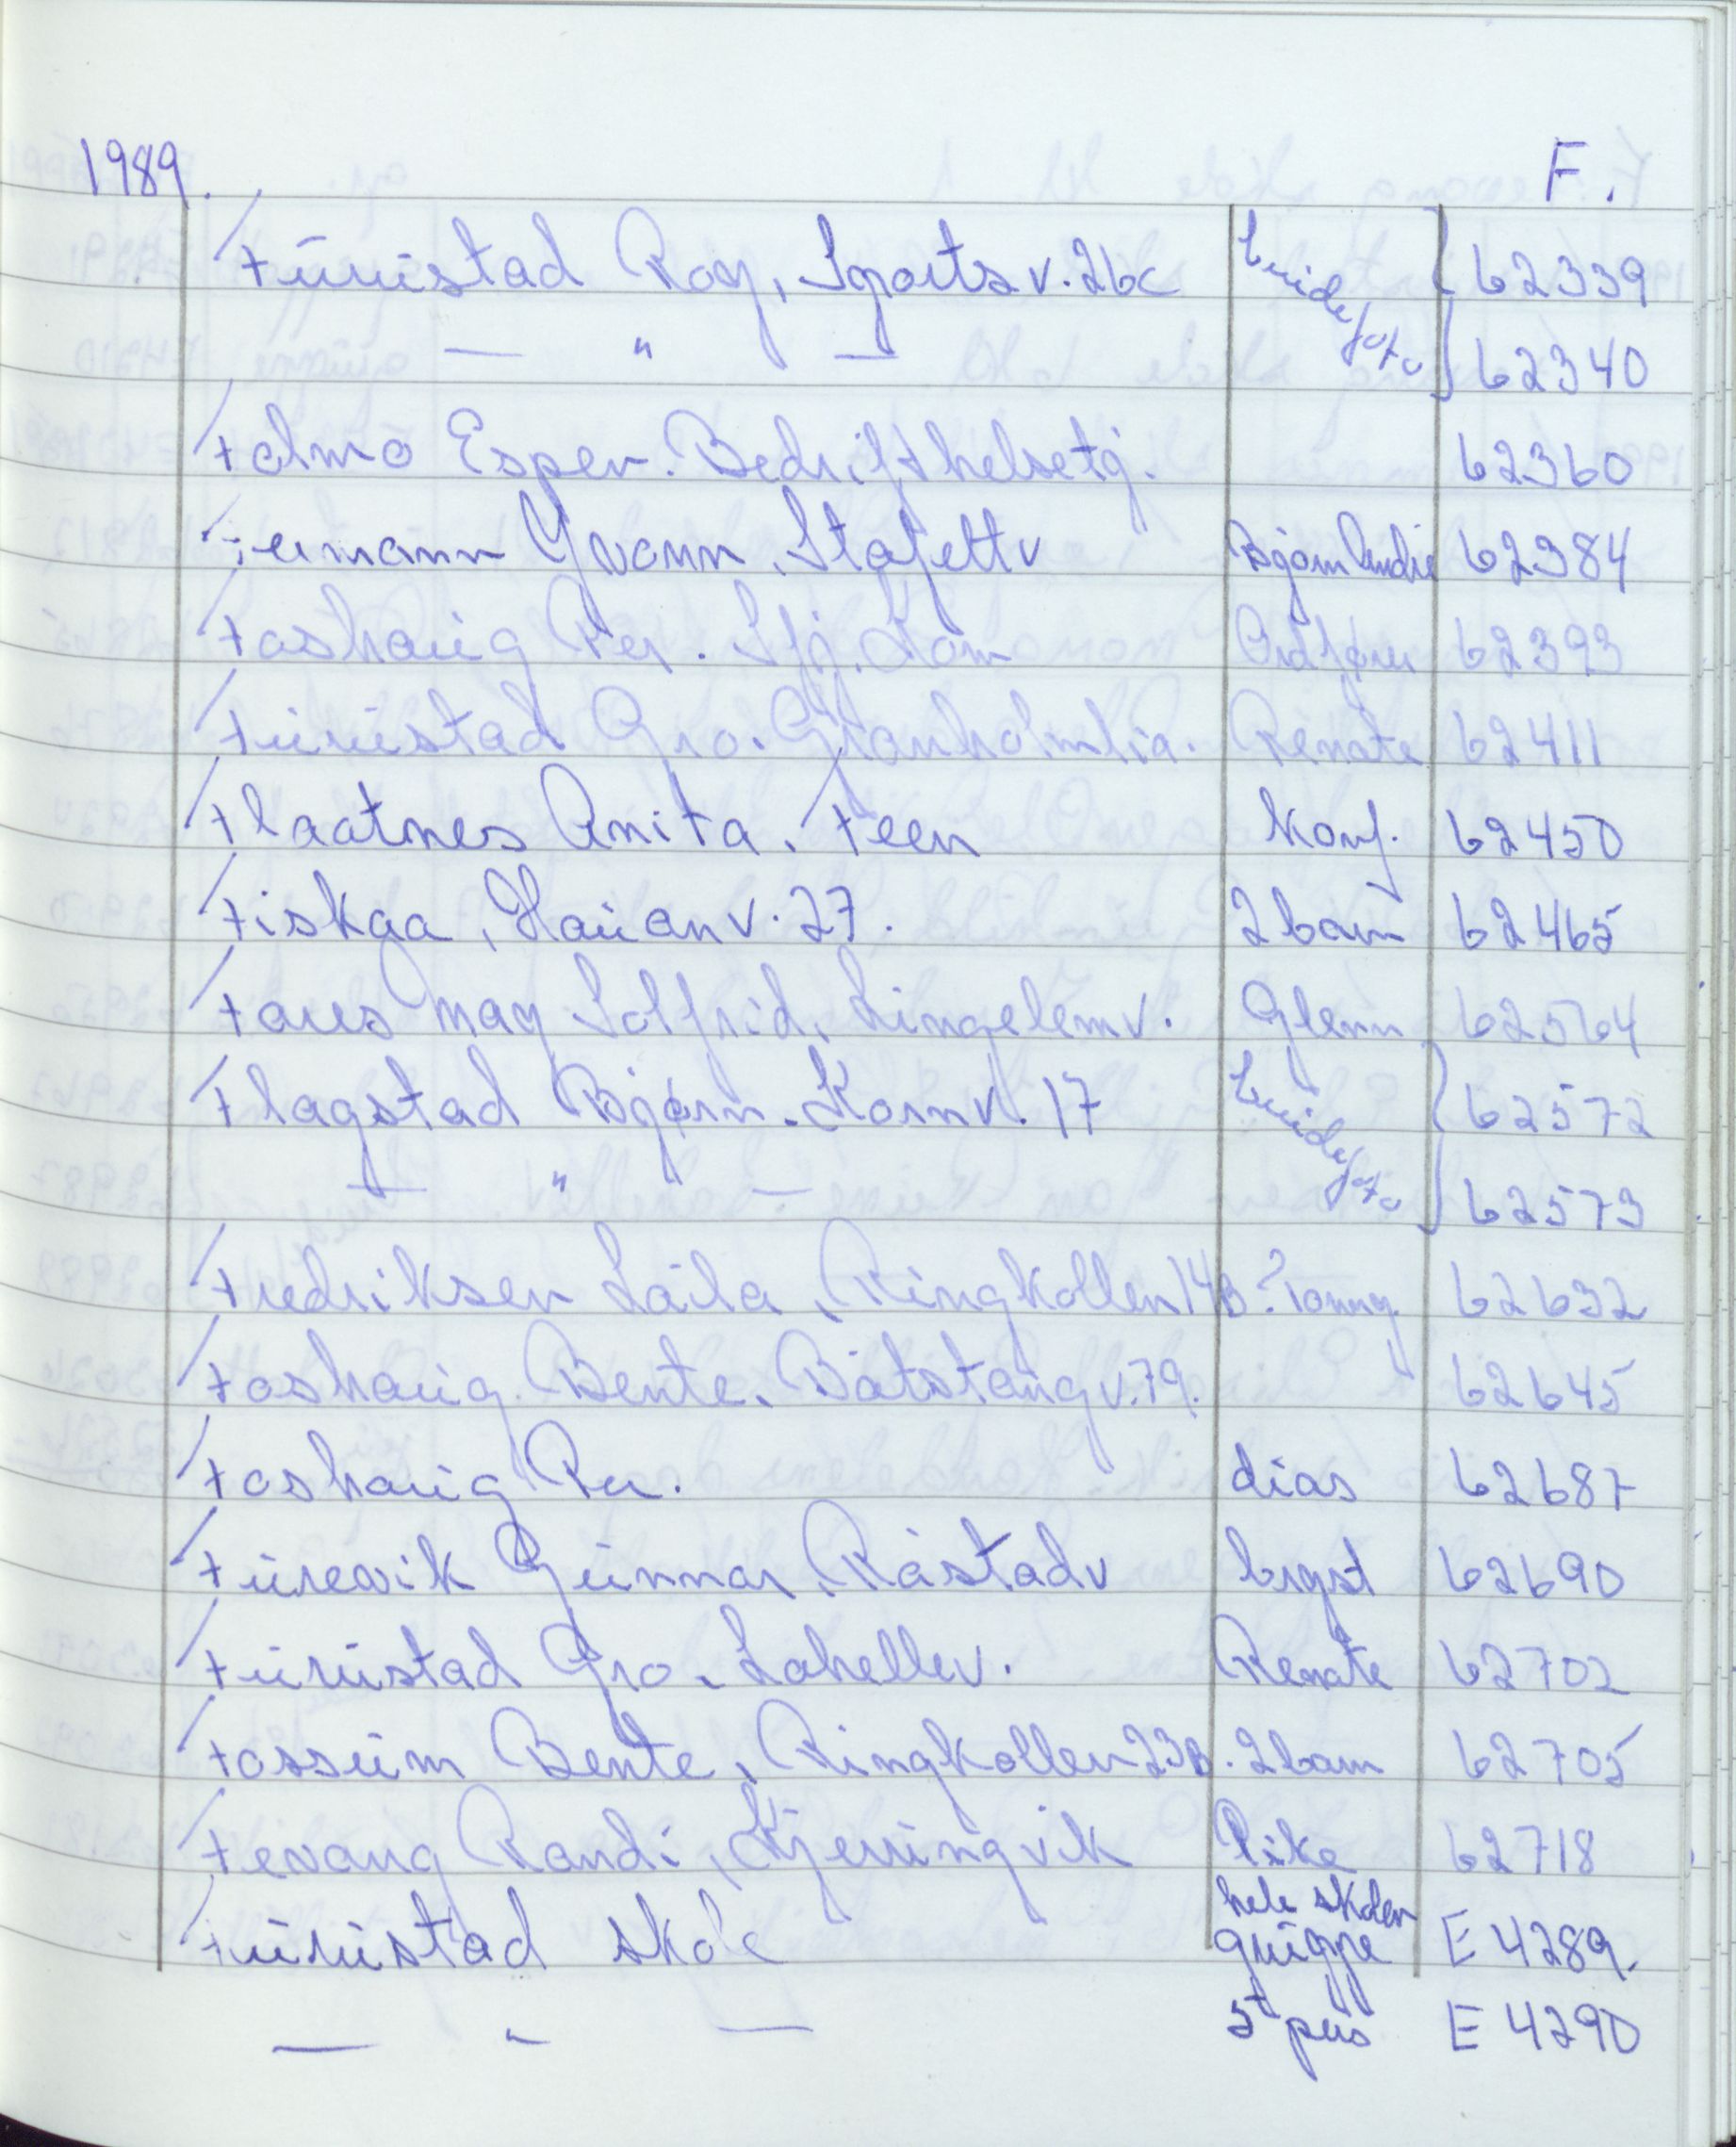 1989. F.
Furustad Roy, Sportsv. 26c brudefoto 62339
— " — 62340
Folmo Espen. Bedrifthelsetj. 62360
Fermann Yvonn, Stafettv Bjørn Andre 62384
Foshaug Per. Sfj. Kom Ordfører 62393
Furustad Gro. Granholmlia. Renate 62411
Flaatnes Anita. Feen Konf. 62450
Fiskaa, Haukanv. 27. 2 barn 62465
Fares May Solfrid, Lingelemv. Glenn 62564
Flagstad Bjørn. Kornv. 17 brudefoto 62572
— " — 62573
Fredriksen Laila, Ringkollen 14B ? Tonny 62632
Foshaug Bente. Båtstangv. 79. 62645
Foshaug Per. dias 62687
Furevik Gunnar, Råstadv brgst 62690
Furustad Gro. Lahellev. Renate 62702
Fossum Bente, Ringkollen 23B. 2 barn 62705
Fevang Randi, Kjerringvik Pike 62718
Furustad skole hele skolen gruppe E 4289.
— " — E 4290